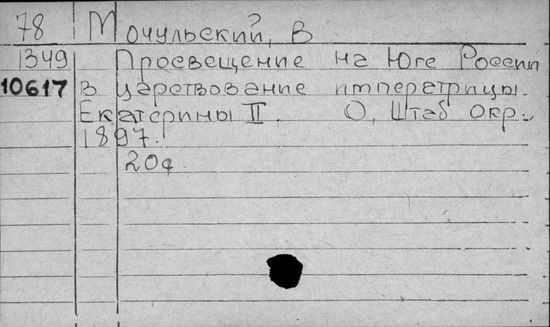 78 Мочульский, В
1349 Просвещение на Юге России
10617 в царствование императрицы
Екатерины II. О, Штаб окр.,
1897.
20с